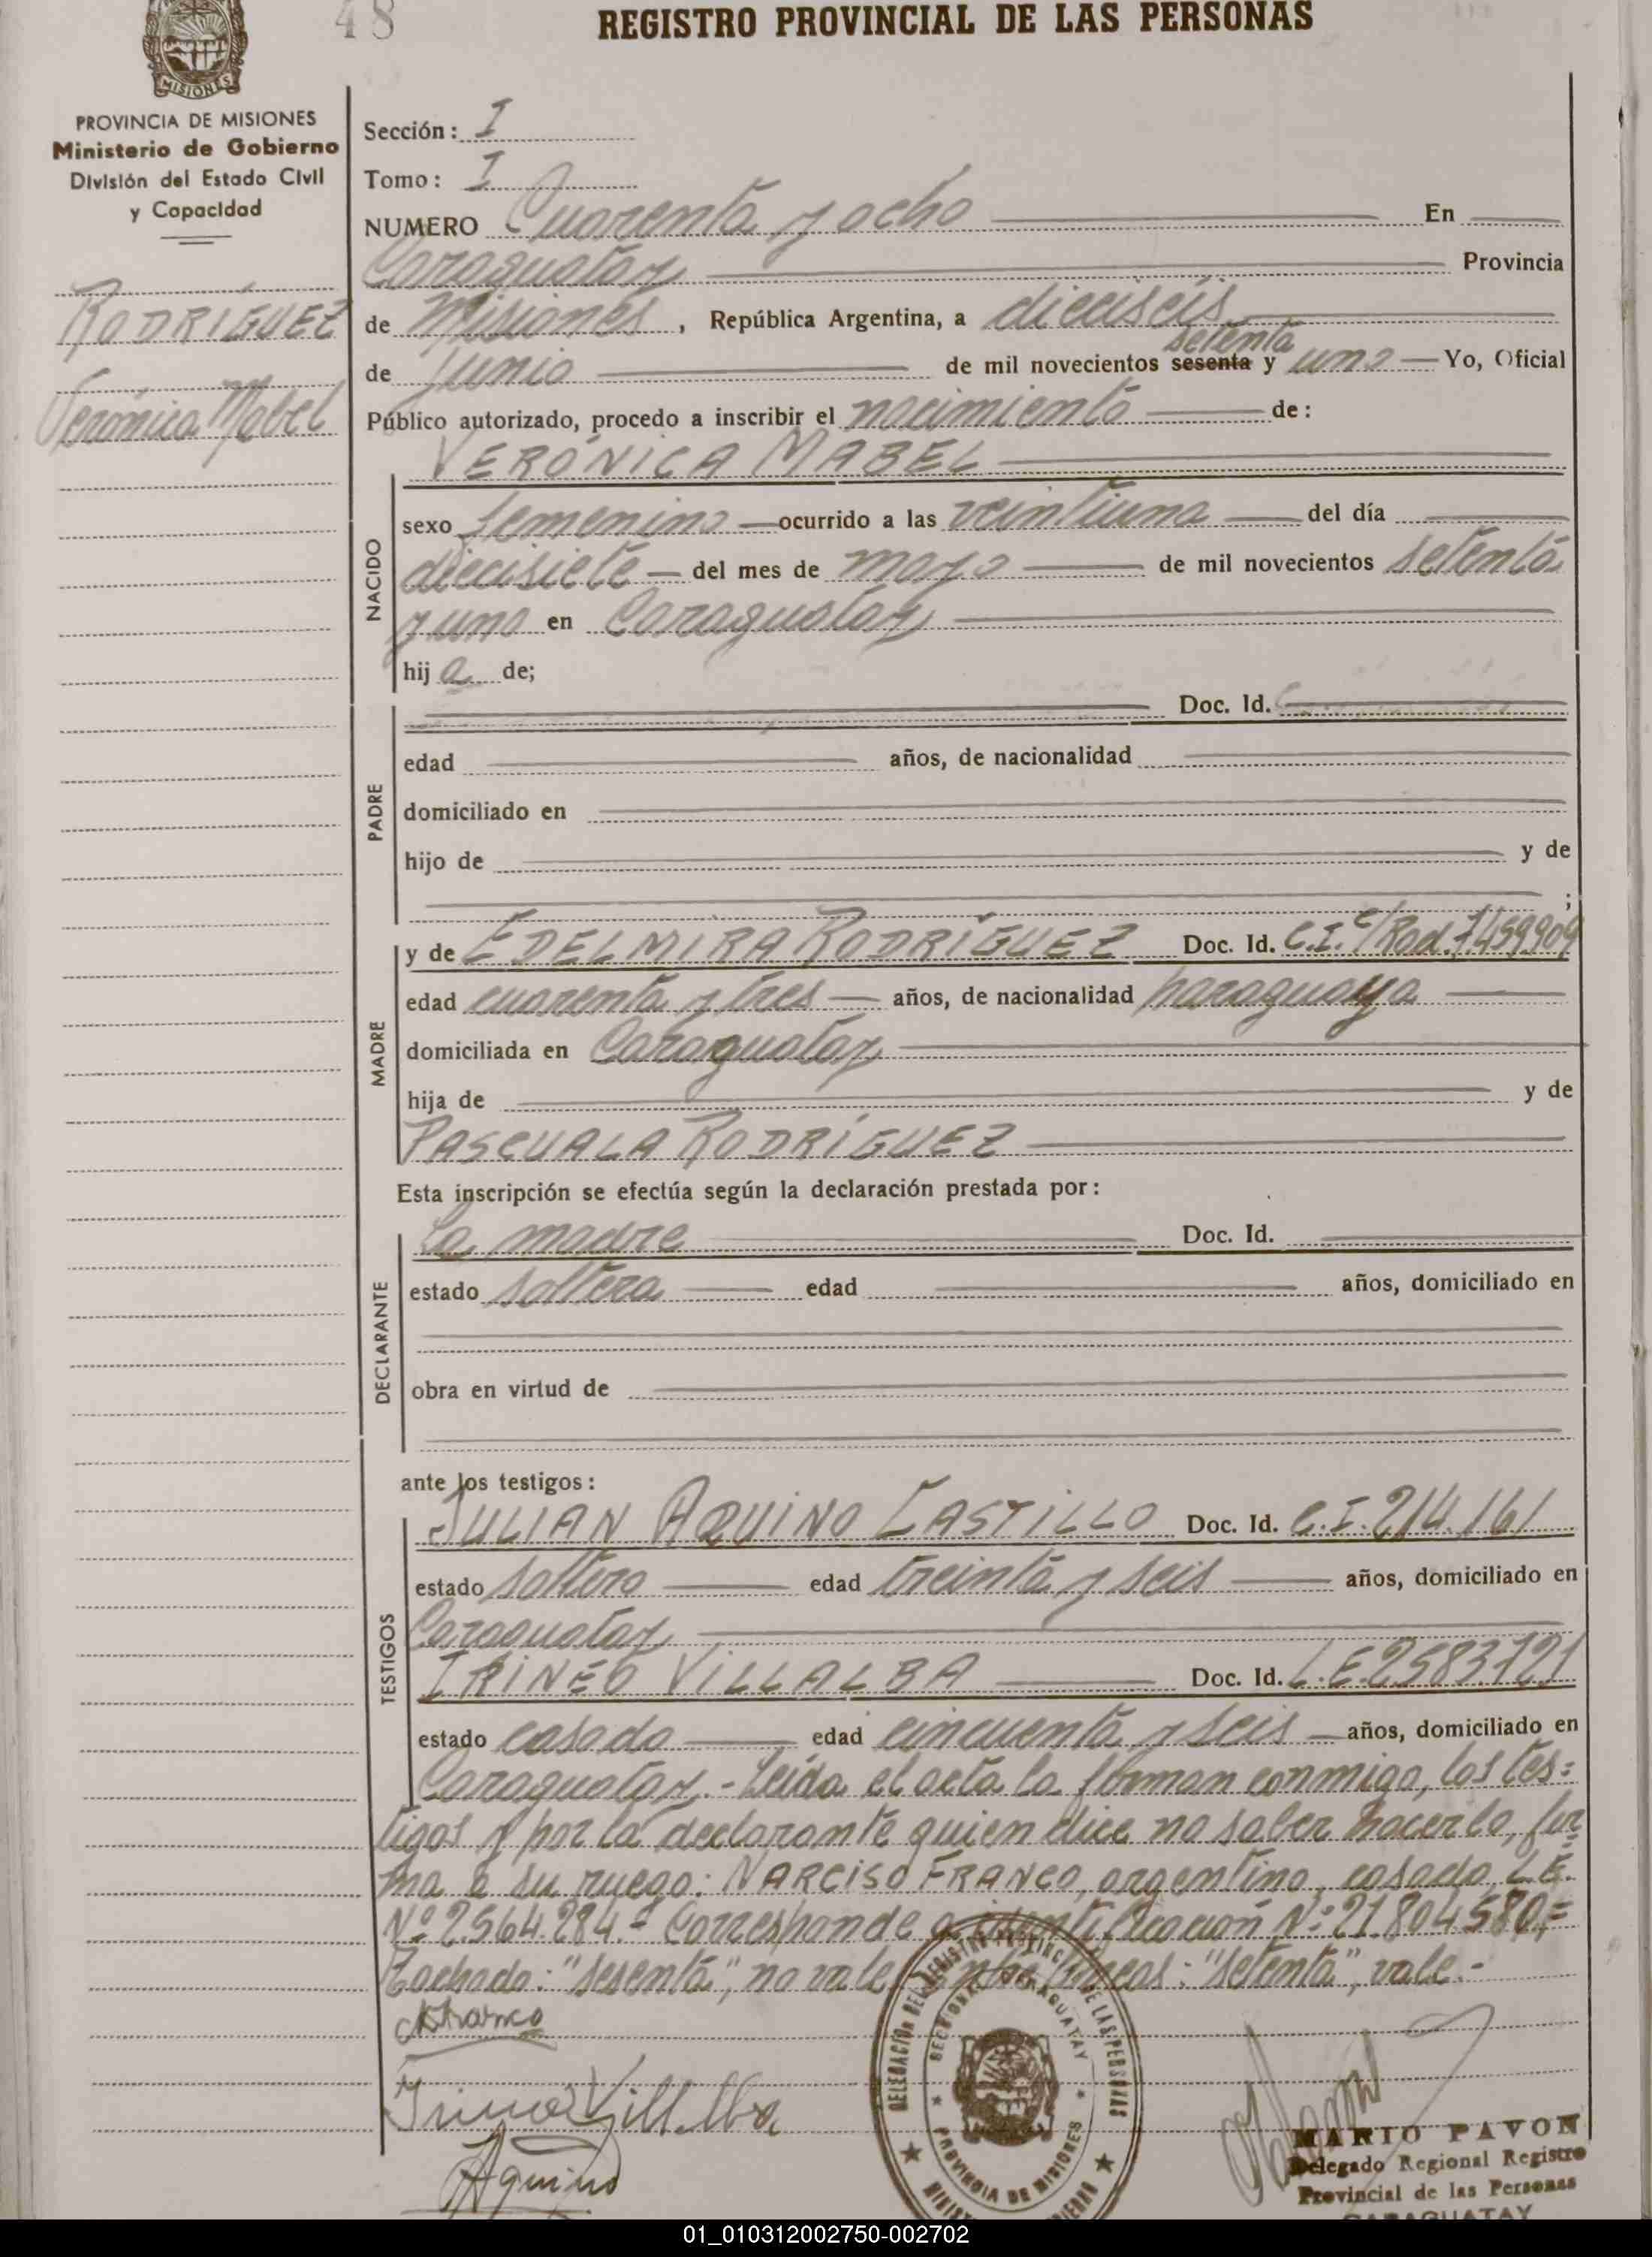 48
REGISTRO PROVINCIAL DE LAS PERSONAS
MISIONES
PROVINCIA DE MISIONES
Ministerio de Gobierno
División del Estado Civil
y Capacidad
RODRÍGUEZ
Verónica Mabel
Sección: I
Tomo: I
NUMERO Cuarenta y ocho En
Caraguatay Provincia
de Misiones, República Argentina, a dieciséis
setenta
de junio de mil novecientos sesenta y uno Yo, Oficial
Público autorizado, procedo a inscribir el nacimiento de:
VERÓNICA MABEL
NACIDO
sexo femenino ocurrido a las veintiuna del día
diecisiete del mes de mayo de mil novecientos setenta
y uno en Caraguatay
hija de;
PADRE
Doc. Id.
edad años, de nacionalidad
domiciliado en
hijo de y de
;
MADRE
y de EDELMIRA RODRÍGUEZ Doc. Id. C.I. c/Rad. 7.459909
edad cuarenta y tres años, de nacionalidad paraguaya
domiciliada en Caraguatay
hija de y de
PASCUALA RODRÍGUEZ
Esta inscripción se efectúa según la declaración prestada por:
DECLARANTE
La madre Doc. Id.
estado soltera edad años, domiciliado en
obra en virtud de
ante los testigos:
TESTIGOS
JULIAN AQUINO CASTILLO Doc. Id. C.I. 214.161
estado soltero edad treinta y seis años, domiciliado en
Caraguatay
IRINEO VILLALBA Doc. Id. L.E. 2583.721
estado casado edad cincuenta y seis años, domiciliado en
Caraguatay.- Leída el acta la firman conmigo, los tes=
tigos y por la declarante quien dice no saber hacerlo, fir=
ma a su ruego: NARCISO FRANCO, argentino, casado, L.E.
Nº 2.564.284.- Corresponde a identificación Nº 21.804.580.=
Tachado: "sesenta", no vale. Entre líneas: "setenta", vale.-
NFranco
Irineo Villalba
Aquino
DELEGACIÓN DEL REGISTRO PROVINCIAL DE LAS PERSONAS
CARAGUATAY
PROVINCIA DE MISIONES
MARIO PAVON
Delegado Regional Registro
Provincial de las Personas
CARAGUATAY
01_010312002750-002702